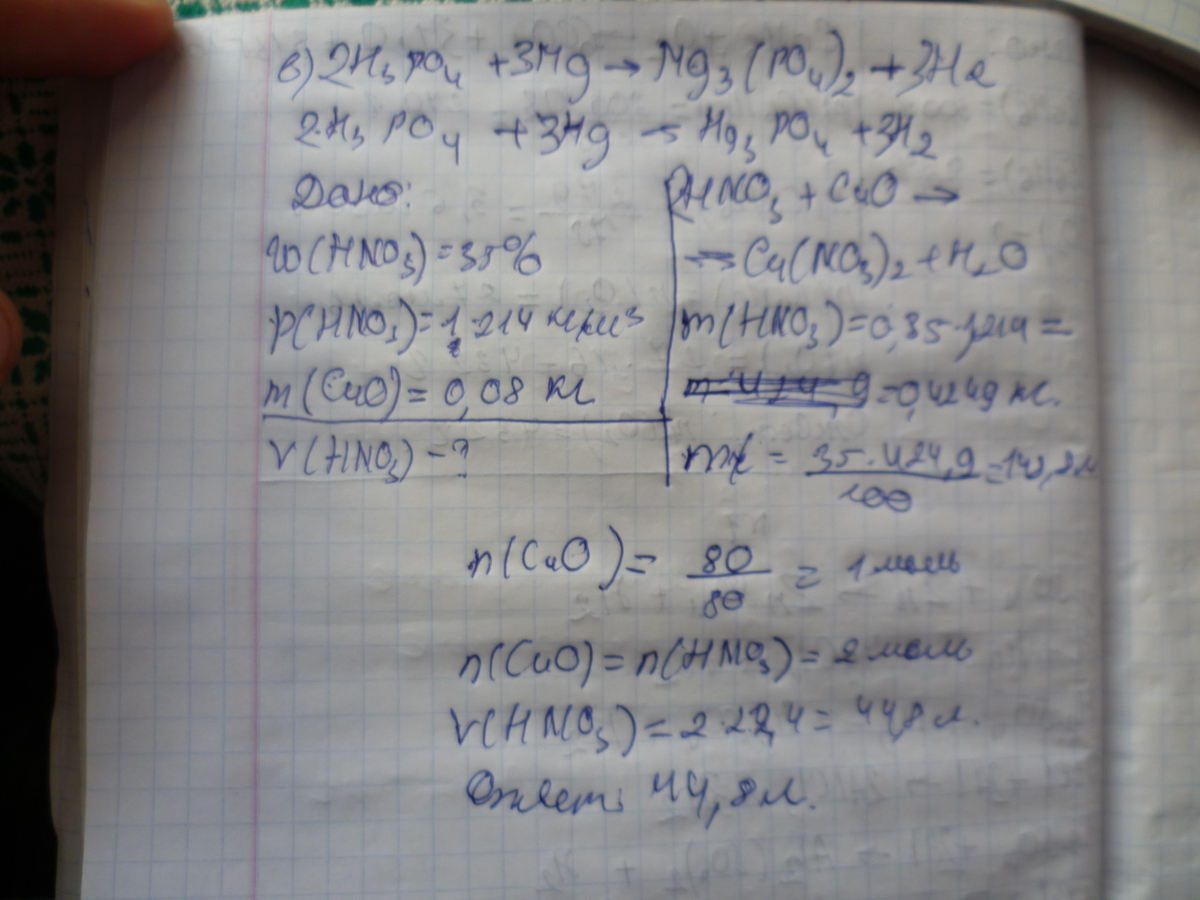 в) 2H₃PO₄ + 3Mg → Mg₃(PO₄)₂ + 3H₂
2H₃PO₄ + 3Mg → Mg₃PO₄ + 3H₂
Дано:
w(HNO₃) = 35%
ρ(HNO₃) = 1,214 кг/м³
m(CuO) = 0,08 кг
V(HNO₃) - ?
2HNO₃ + CuO →
→ Cu(NO₃)₂ + H₂O
m(HNO₃) = 0,35·1,214 =
= 0,4249 кг.
= 35·424,9 / 100 =
n(CuO) = 80/80 = 1 моль
n(CuO) = n(HNO₃) = 2 моль
V(HNO₃) = 2·22,4 = 44,8 л.
Ответ: 44,8 л.